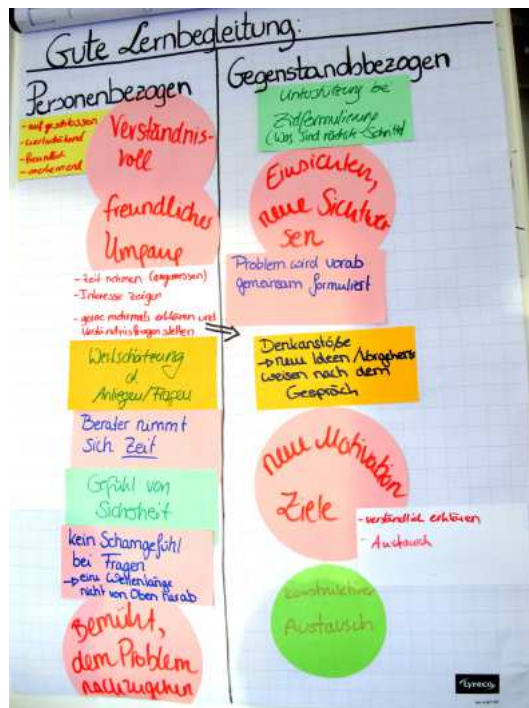 Gute Lernbegleitung:
Personenbezogen
- aufgeschlossen
- wertschätzend
- freundlich
- anerkennend
Verständnis-
voll
freundlicher
Umgang
- Zeit nehmen (angemessen)
- Interesse zeigen
- gerne mehrmals erklären und
Verständnisfragen stellen
Wertschätzung
d.
Anliegen/Fragen
Berater nimmt
sich Zeit
Gefühl von
Sicherheit
kein Schamgefühl
bei Fragen
→ eine Wellenlänge
nicht von Oben herab
Bemüht,
dem Problem
nachzugehen
Gegenstandsbezogen
Unterstützung bei
Zielformulierung
(Was sind nächste Schritte
Einsichten,
neue Sichtwei
sen
Problem wird vorab
gemeinsam formuliert
⇒
Denkanstöße
→ neue Ideen/Vorgehens
weisen nach dem
Gespräch
neue Motivation
Ziele
- verständlich erklären
- Austausch
konstruktiver
Austausch
Lyreco